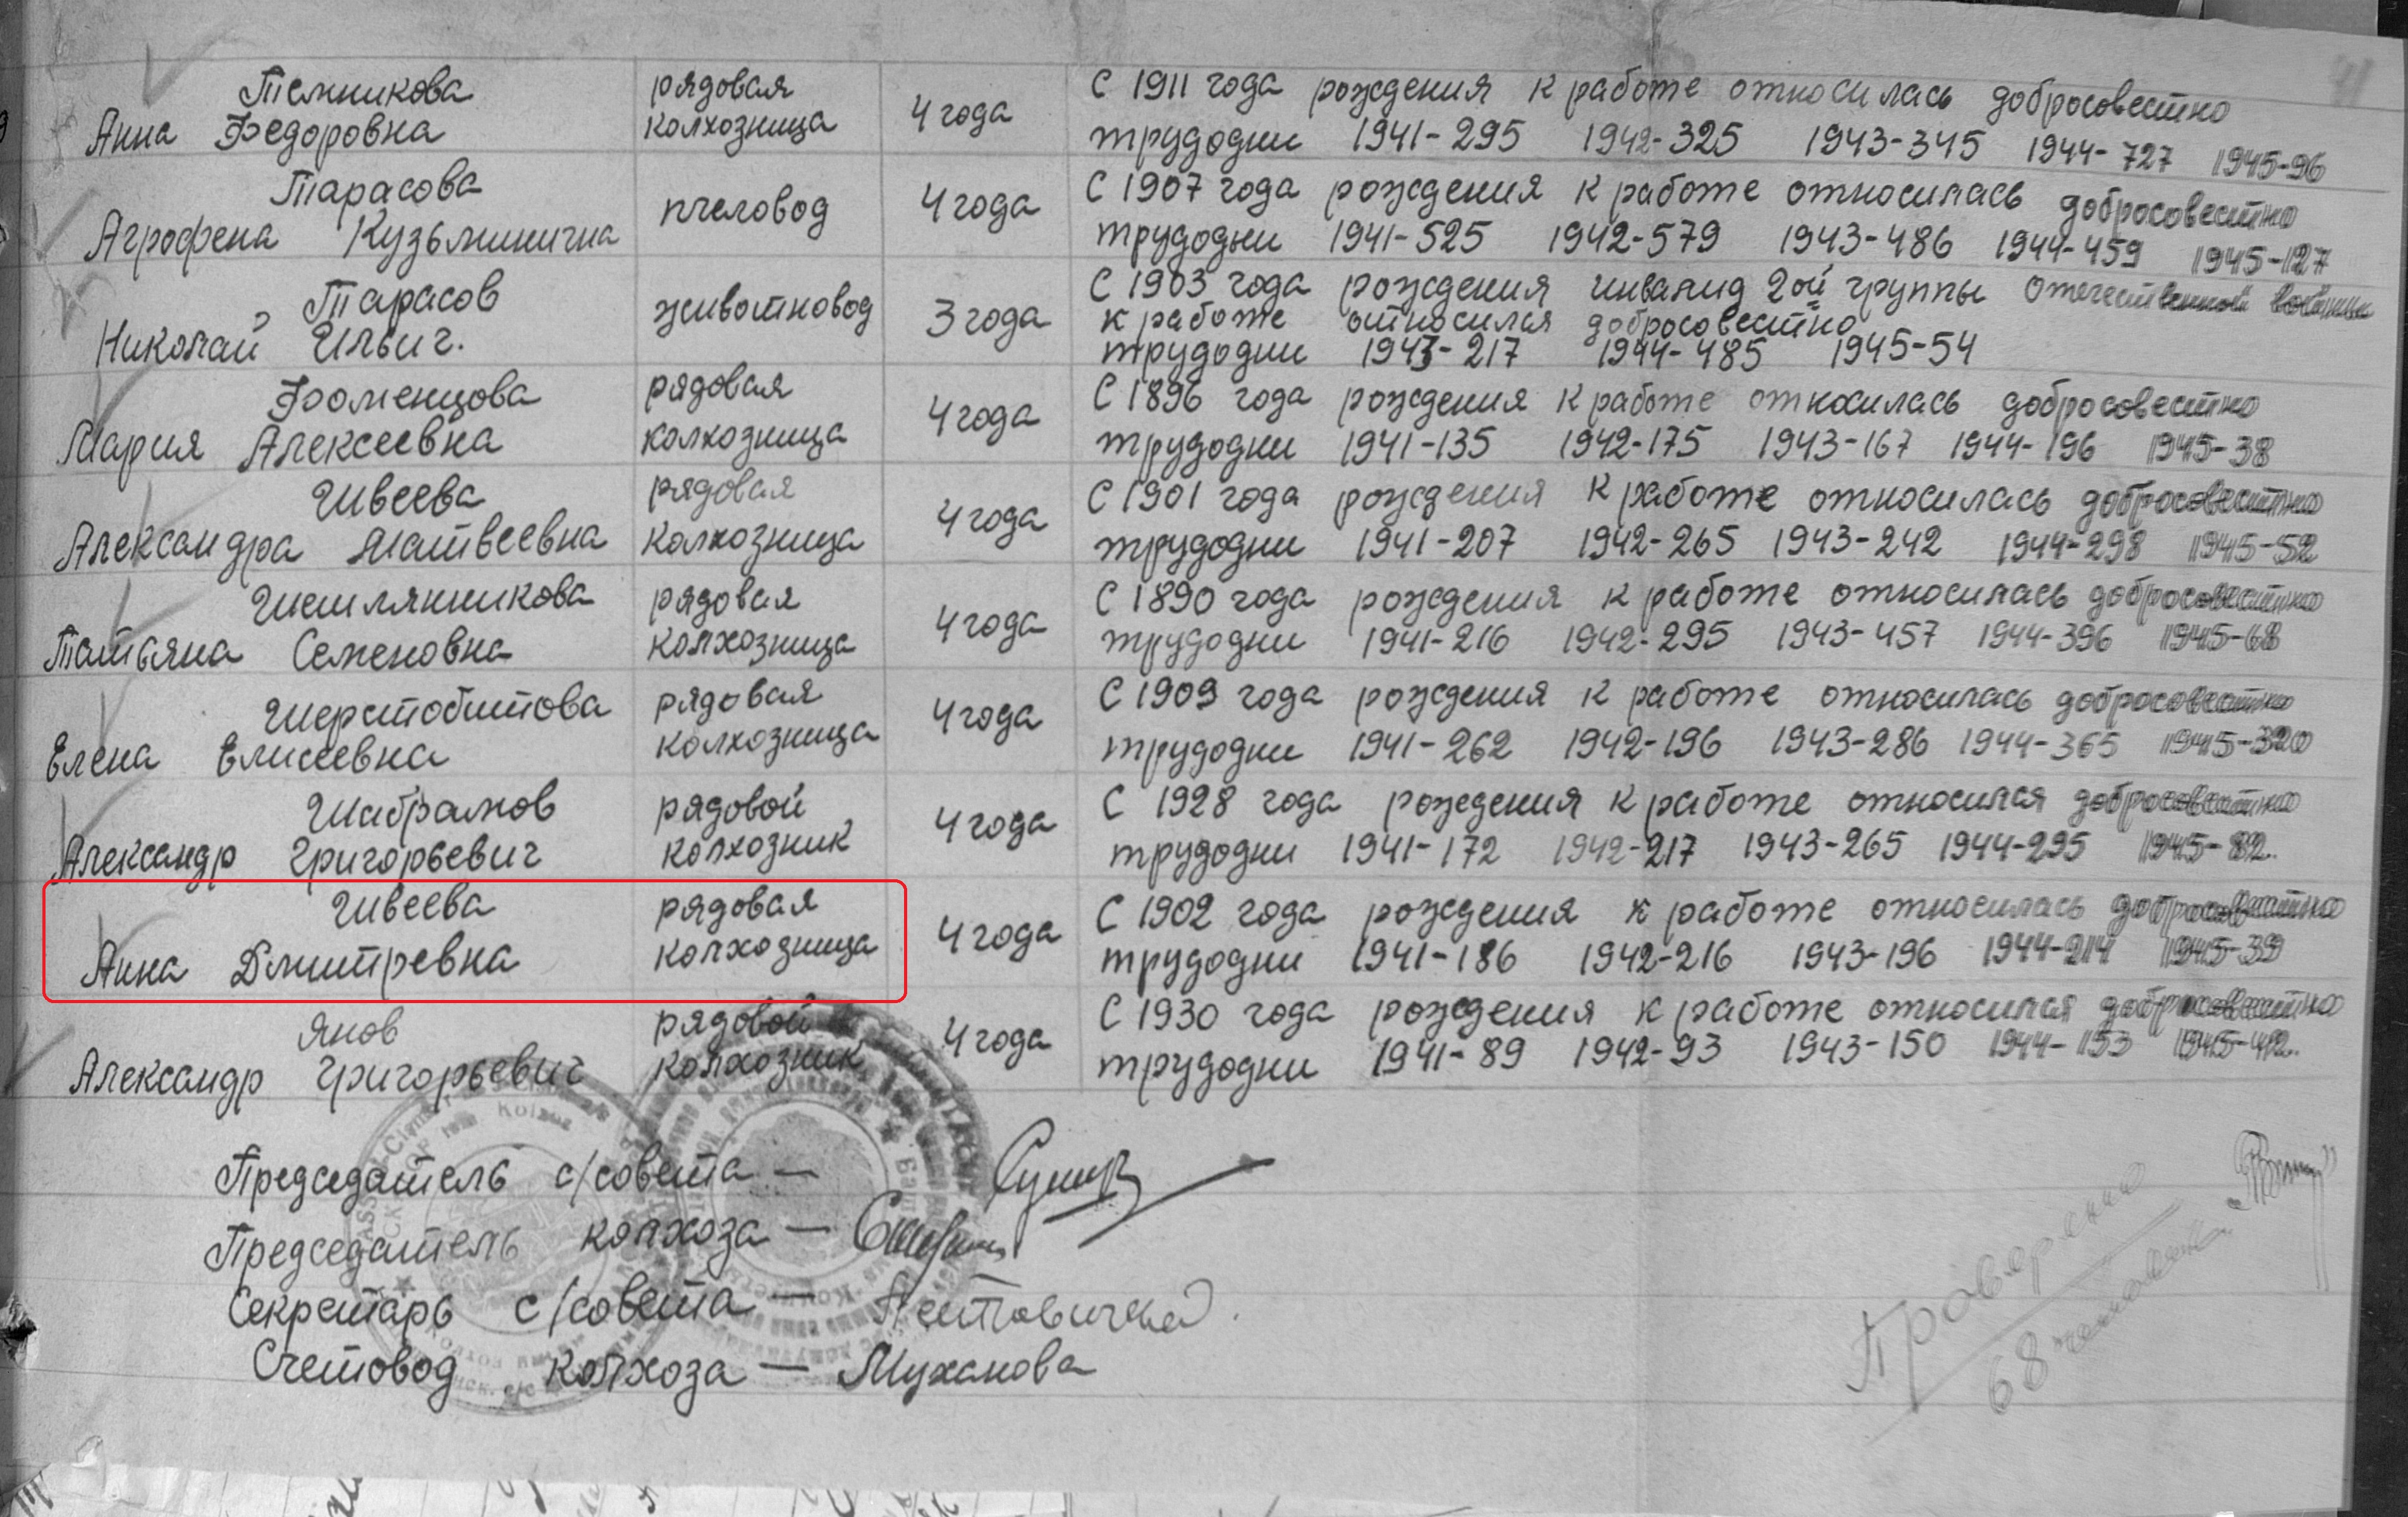 41
Темникова рядовая 4 года С 1911 года рождения к работе относилась добросовестно
Анна Федоровна колхозница трудодни 1941-295 1942-325 1943-345 1944-727 1945-96
Тарасова пчеловод 4 года С 1907 года рождения к работе относилась добросовестно
Агрофена Кузьминична трудодни 1941-525 1942-579 1943-486 1944-459 1945-127
Тарасов животновод 3 года С 1903 года рождения инвалид 2ой группы Отечественной войны
Николай Ильич. к работе относился добросовестно
трудодни 1943-217 1944-485 1945-54
Фоменцова рядовая 4 года С 1896 года рождения к работе относилась добросовестно
Мария Алексеевна колхозница трудодни 1941-135 1942-175 1943-167 1944-196 1945-38
Швеева рядовая 4 года С 1901 года рождения к работе относилась добросовестно
Александра Матвеевна колхозница трудодни 1941-207 1942-265 1943-242 1944-298 1945-52
Шешлянникова рядовая 4 года С 1890 года рождения к работе относилась добросовестно
Татьяна Семеновна колхозница трудодни 1941-216 1942-295 1943-457 1944-396 1945-68
Шерстобитова рядовая 4 года С 1909 года рождения к работе относилась добросовестно
Елена Елисеевна колхозница трудодни 1941-262 1942-196 1943-286 1944-365 1945-320
Шабрамов рядовой 4 года С 1928 года рождения к работе относился добросовестно
Александр Григорьевич колхозник трудодни 1941-172 1942-217 1943-265 1944-295 1945-82.
Швеева рядовая 4 года С 1902 года рождения к работе относилась добросовестно
Анна Дмитревна колхозница трудодни 1941-186 1942-216 1943-196 1944-214 1945-39
Янов рядовой 4 года С 1930 года рождения к работе относился добросовестно
Александр Григорьевич колхозник трудодни 1941-89 1942-93 1943-150 1944-153 1945-42.
Председатель с/совета —
Председатель колхоза —
Секретарь с/совета —
Счетовод колхоза — Муханова
Проверено
68 человек